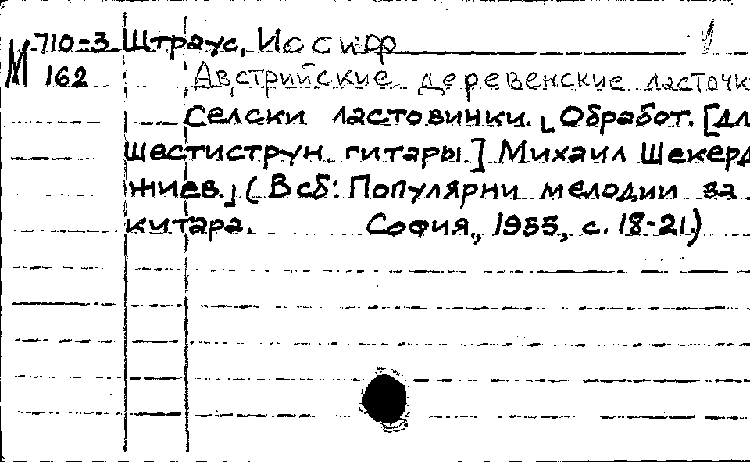 М 710-3 Штраус, Иосиф 1
162 Австрийские деревенские ласточк
Селски ластовинки. [Обработ. [дл
шестиструн. гитары.] Михаил Шекерд
жиев.] (В сб: Популярни мелодии за
китара. София, 1955, с. 18-21.)